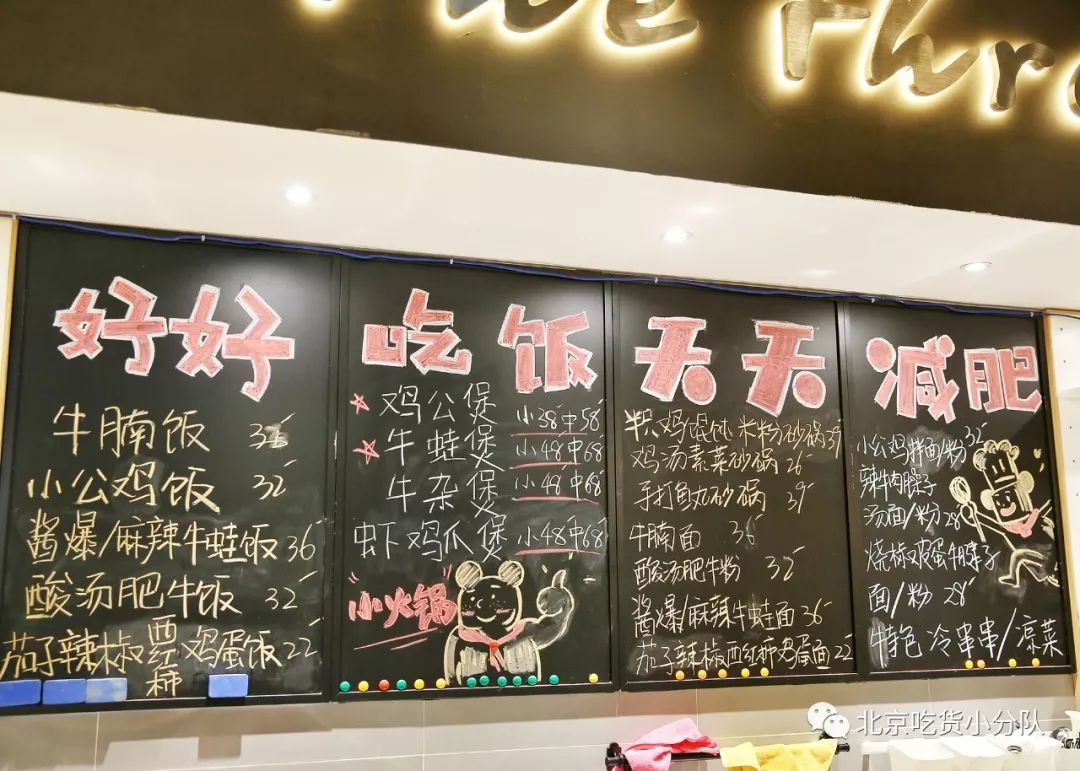 Five Thre
好好 吃饭 天天 减肥
牛腩饭 36
小公鸡饭 32
酱爆/麻辣牛蛙饭 36
酸汤肥牛饭 32
茄子辣椒西红柿鸡蛋饭 22
鸡公煲 小38中58
牛蛙煲 小48中68
牛杂煲 小48中68
虾鸡爪煲 小48中68
小火锅
半只鸡馄饨米粉砂锅39
鸡汤素菜砂锅 26
手打鱼丸砂锅 39
牛腩面 36
酸汤肥牛粉 32
酱爆/麻辣牛蛙面 36
茄子辣椒西红柿鸡蛋面 22
小公鸡拌面/粉 32
辣牛肉臊子
汤面/粉 28
烧椒鸡蛋牛臊子
面/粉 28
特色冷串串/凉菜
北京吃货小分队